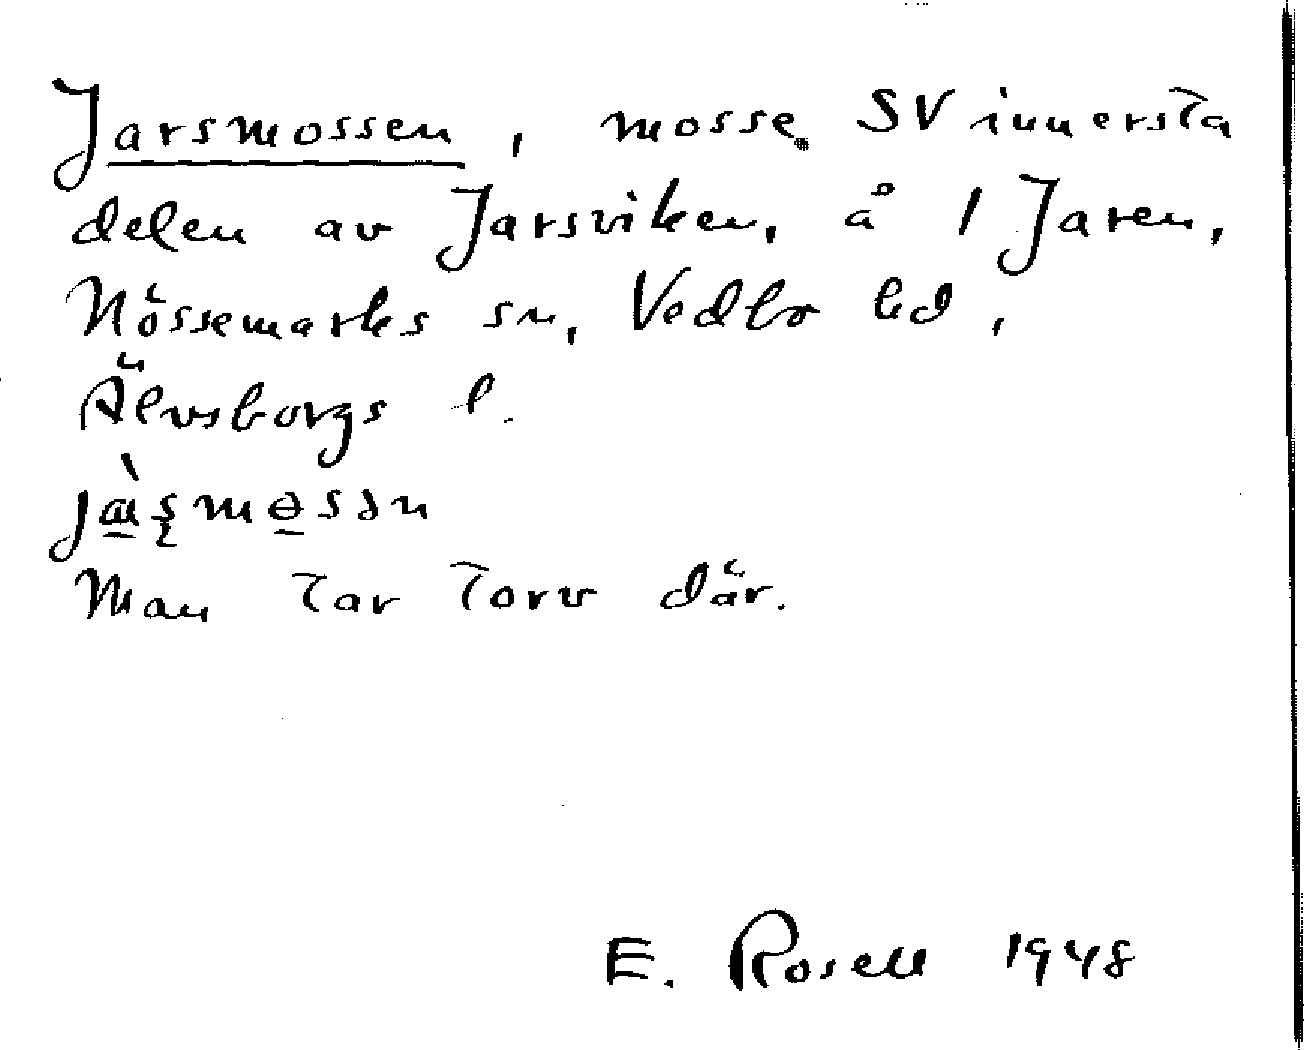 Jarsmossen, mosse SV innersta
delen av Jarsviken, å 1 Jaren,
Nössemarks sn, Vedbo hd,
Älvsborgs l.
Man tar torv där.
E. Rosell 1948